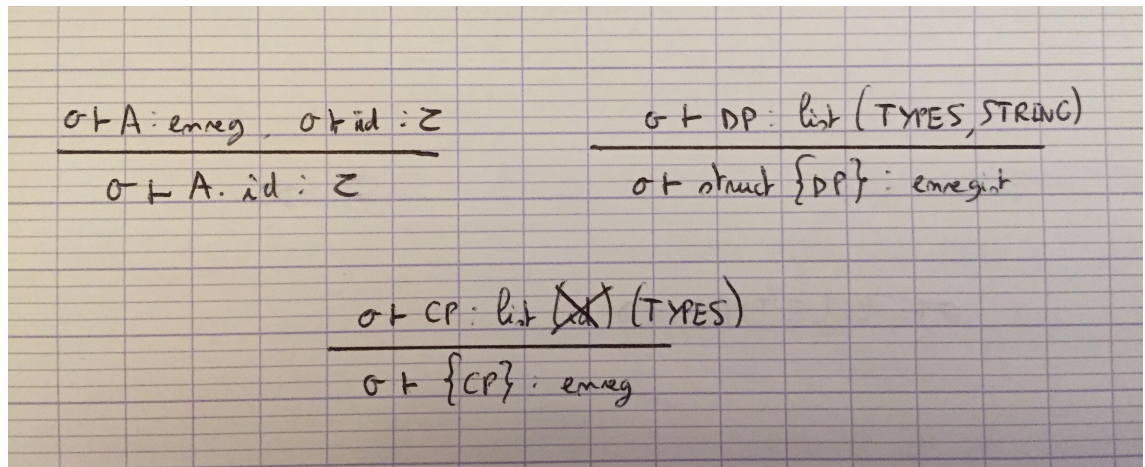 σ ⊢ A : enreg, σ ⊢ id : τ
σ ⊢ A. id : τ
σ ⊢ DP : list (TYPES, STRING)
σ ⊢ struct {DP} : enregist
σ ⊢ CP : list (TYPES)
σ ⊢ {CP} : enreg